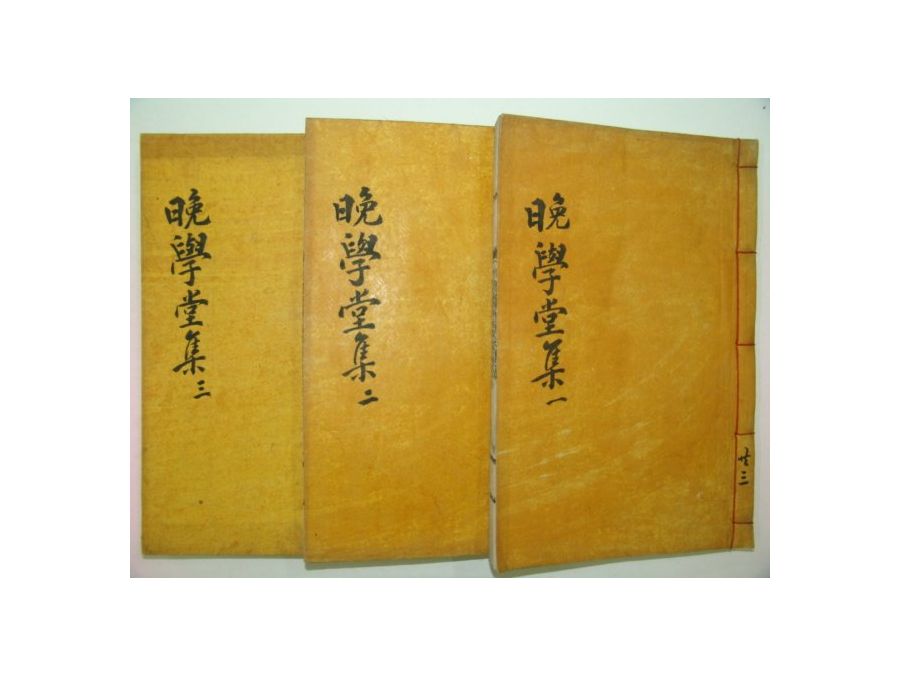 晚學堂集 一
共三
晚學堂集 二
晚學堂集 三